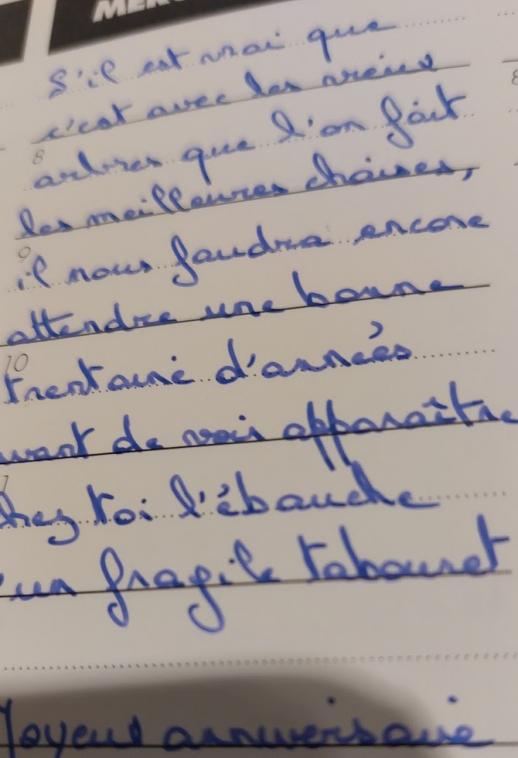 S'il est vrai que
c'est avec les vieux
8
arbres que l'on fait
les meilleures chaises,
9
il nous faudra encore
attendre une bonne
10
trentaine d'années
avant de voir apparaître
chez toi l'ébauche
d'un fragile tabouret
Joyeux anniversaire